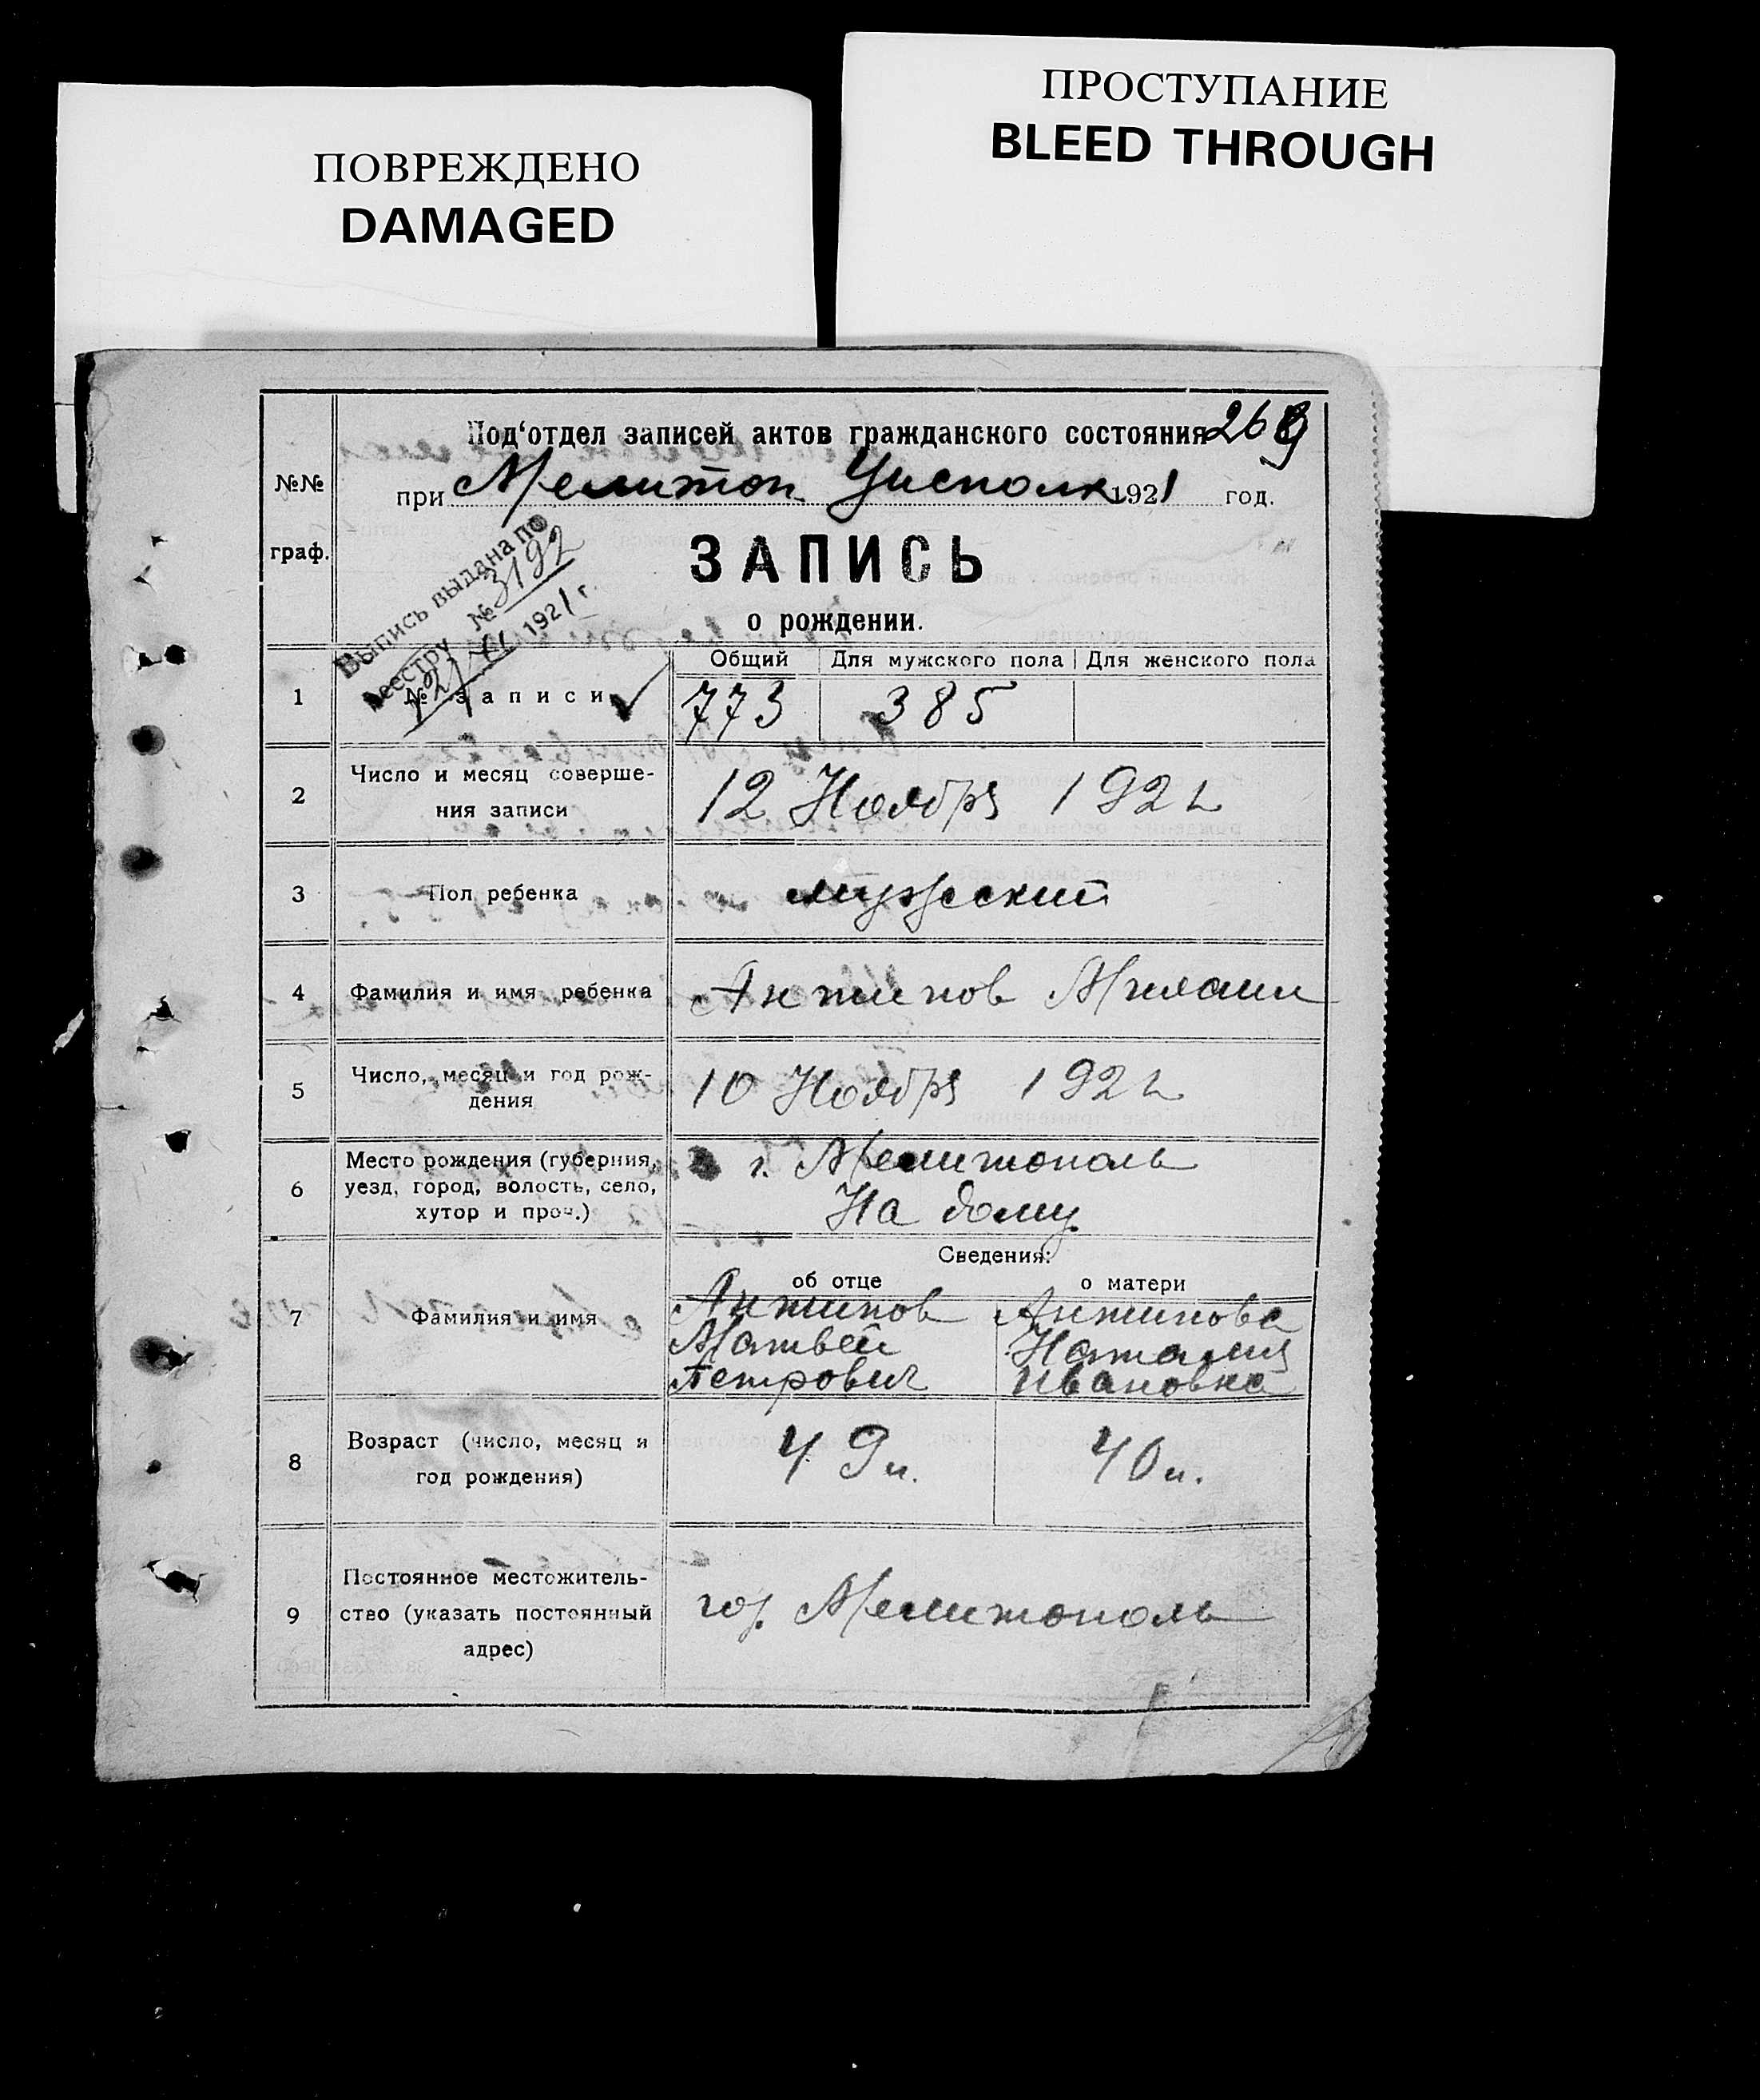 ПОВРЕЖДЕНО
DAMAGED
ПРОСТУПАНИЕ
BLEED THROUGH
Под‘отдел записей актов гражданского состояния 269
при Мелитоп Уисполк 1921 год.
№№
граф.
Выпись выдана по
реестру № 3192
21/XI 1921 г.
ЗАПИСЬ
о рождении.
Общий Для мужского пола Для женского пола
1 № записи 773 385
2 Число и месяц соверше-
ния записи
12 Ноября 1921
3 Пол ребенка мужеский
4 Фамилия и имя ребенка Антипов Михаил
5 Число, месяц и год рож-
дения
10 Ноября 1921
6 Место рождения (губерния,
уезд, город, волость, село,
хутор и проч.)
г. Мелитополь
На дому
Сведения:
об отце о матери
7 Фамилия и имя
Антипов
Матвей
Петрович
Антипова
Наталия
Ивановна
8 Возраст (число, месяц и
год рождения)
49 л. 40 л.
9 Постоянное местожитель-
ство (указать постоянный
адрес)
гор. Мелитополь